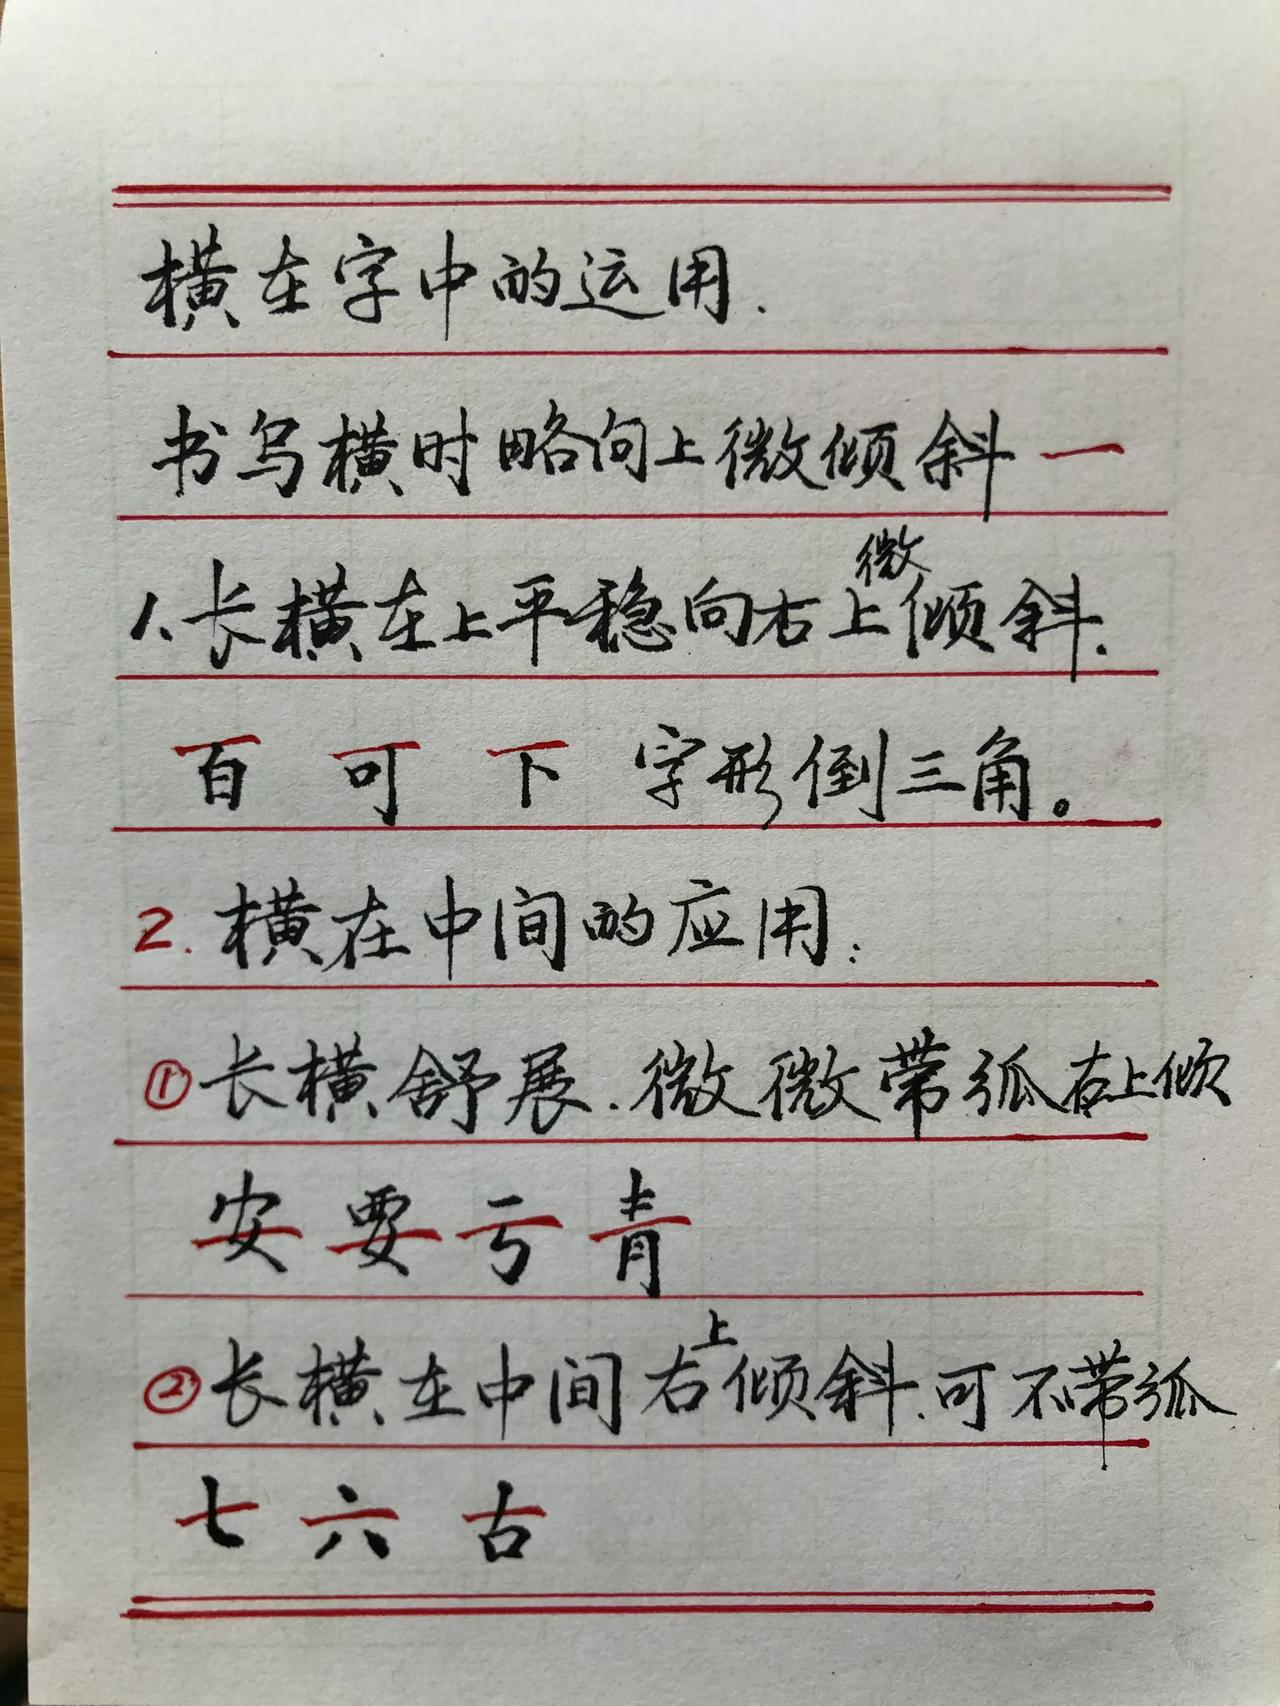 横在字中的运用.
书写横时略向上微倾斜一
1、长横在上平稳向右上微倾斜.
百 可 下 字形倒三角。
2. 横在中间的应用:
①长横舒展.微微带弧右上倾
安 要 亏 青
②长横在中间右上倾斜.可不带弧
七 六 古